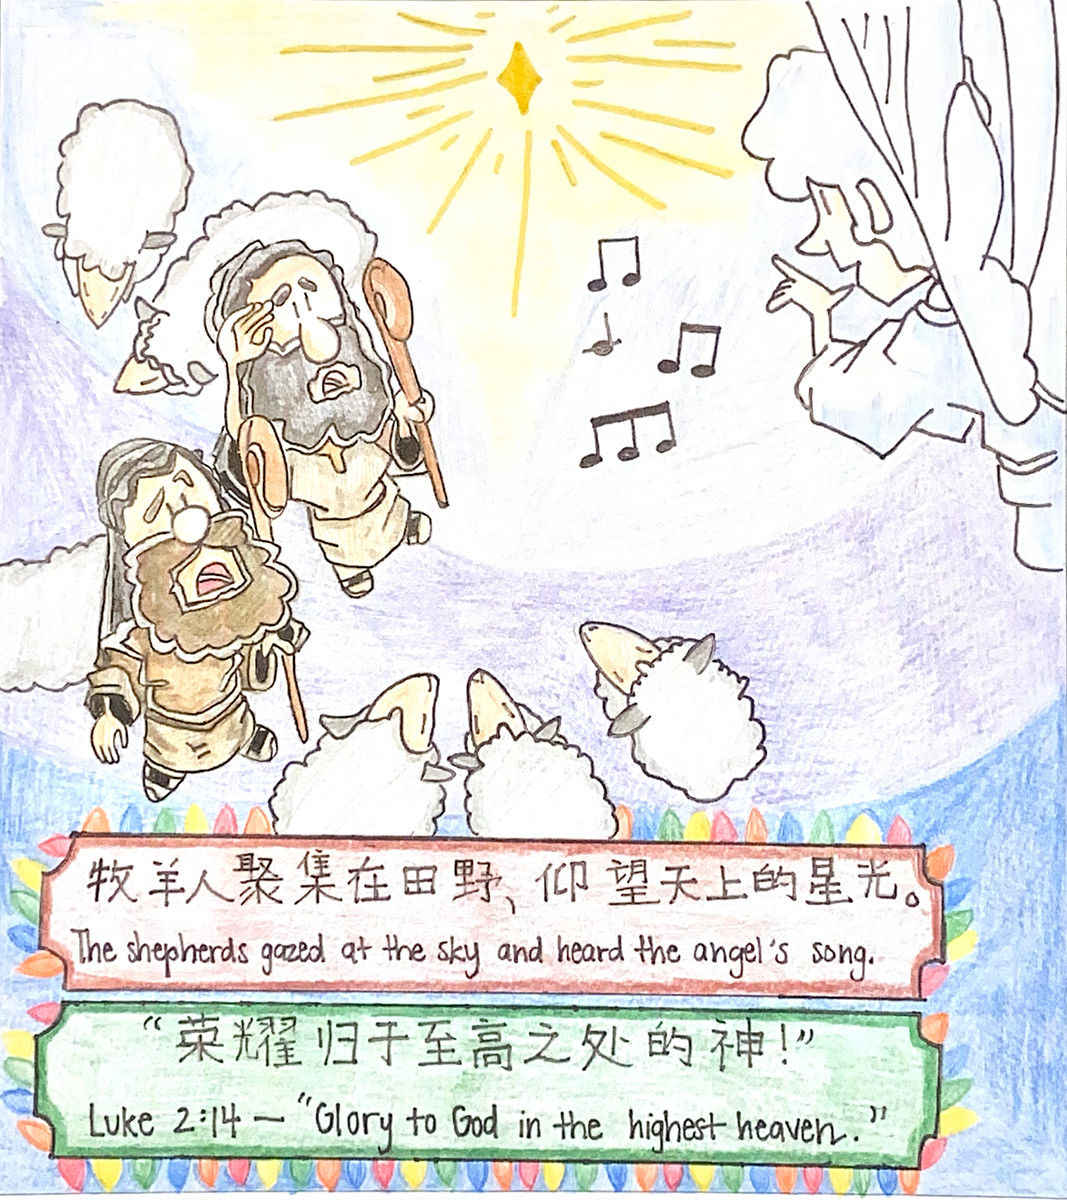 牧羊人聚集在田野、仰望天上的星光。
The shepherds gazed at the sky and heard the angel's song.
“荣耀归于至高之处的神！”
Luke 2:14 — "Glory to God in the highest heaven."